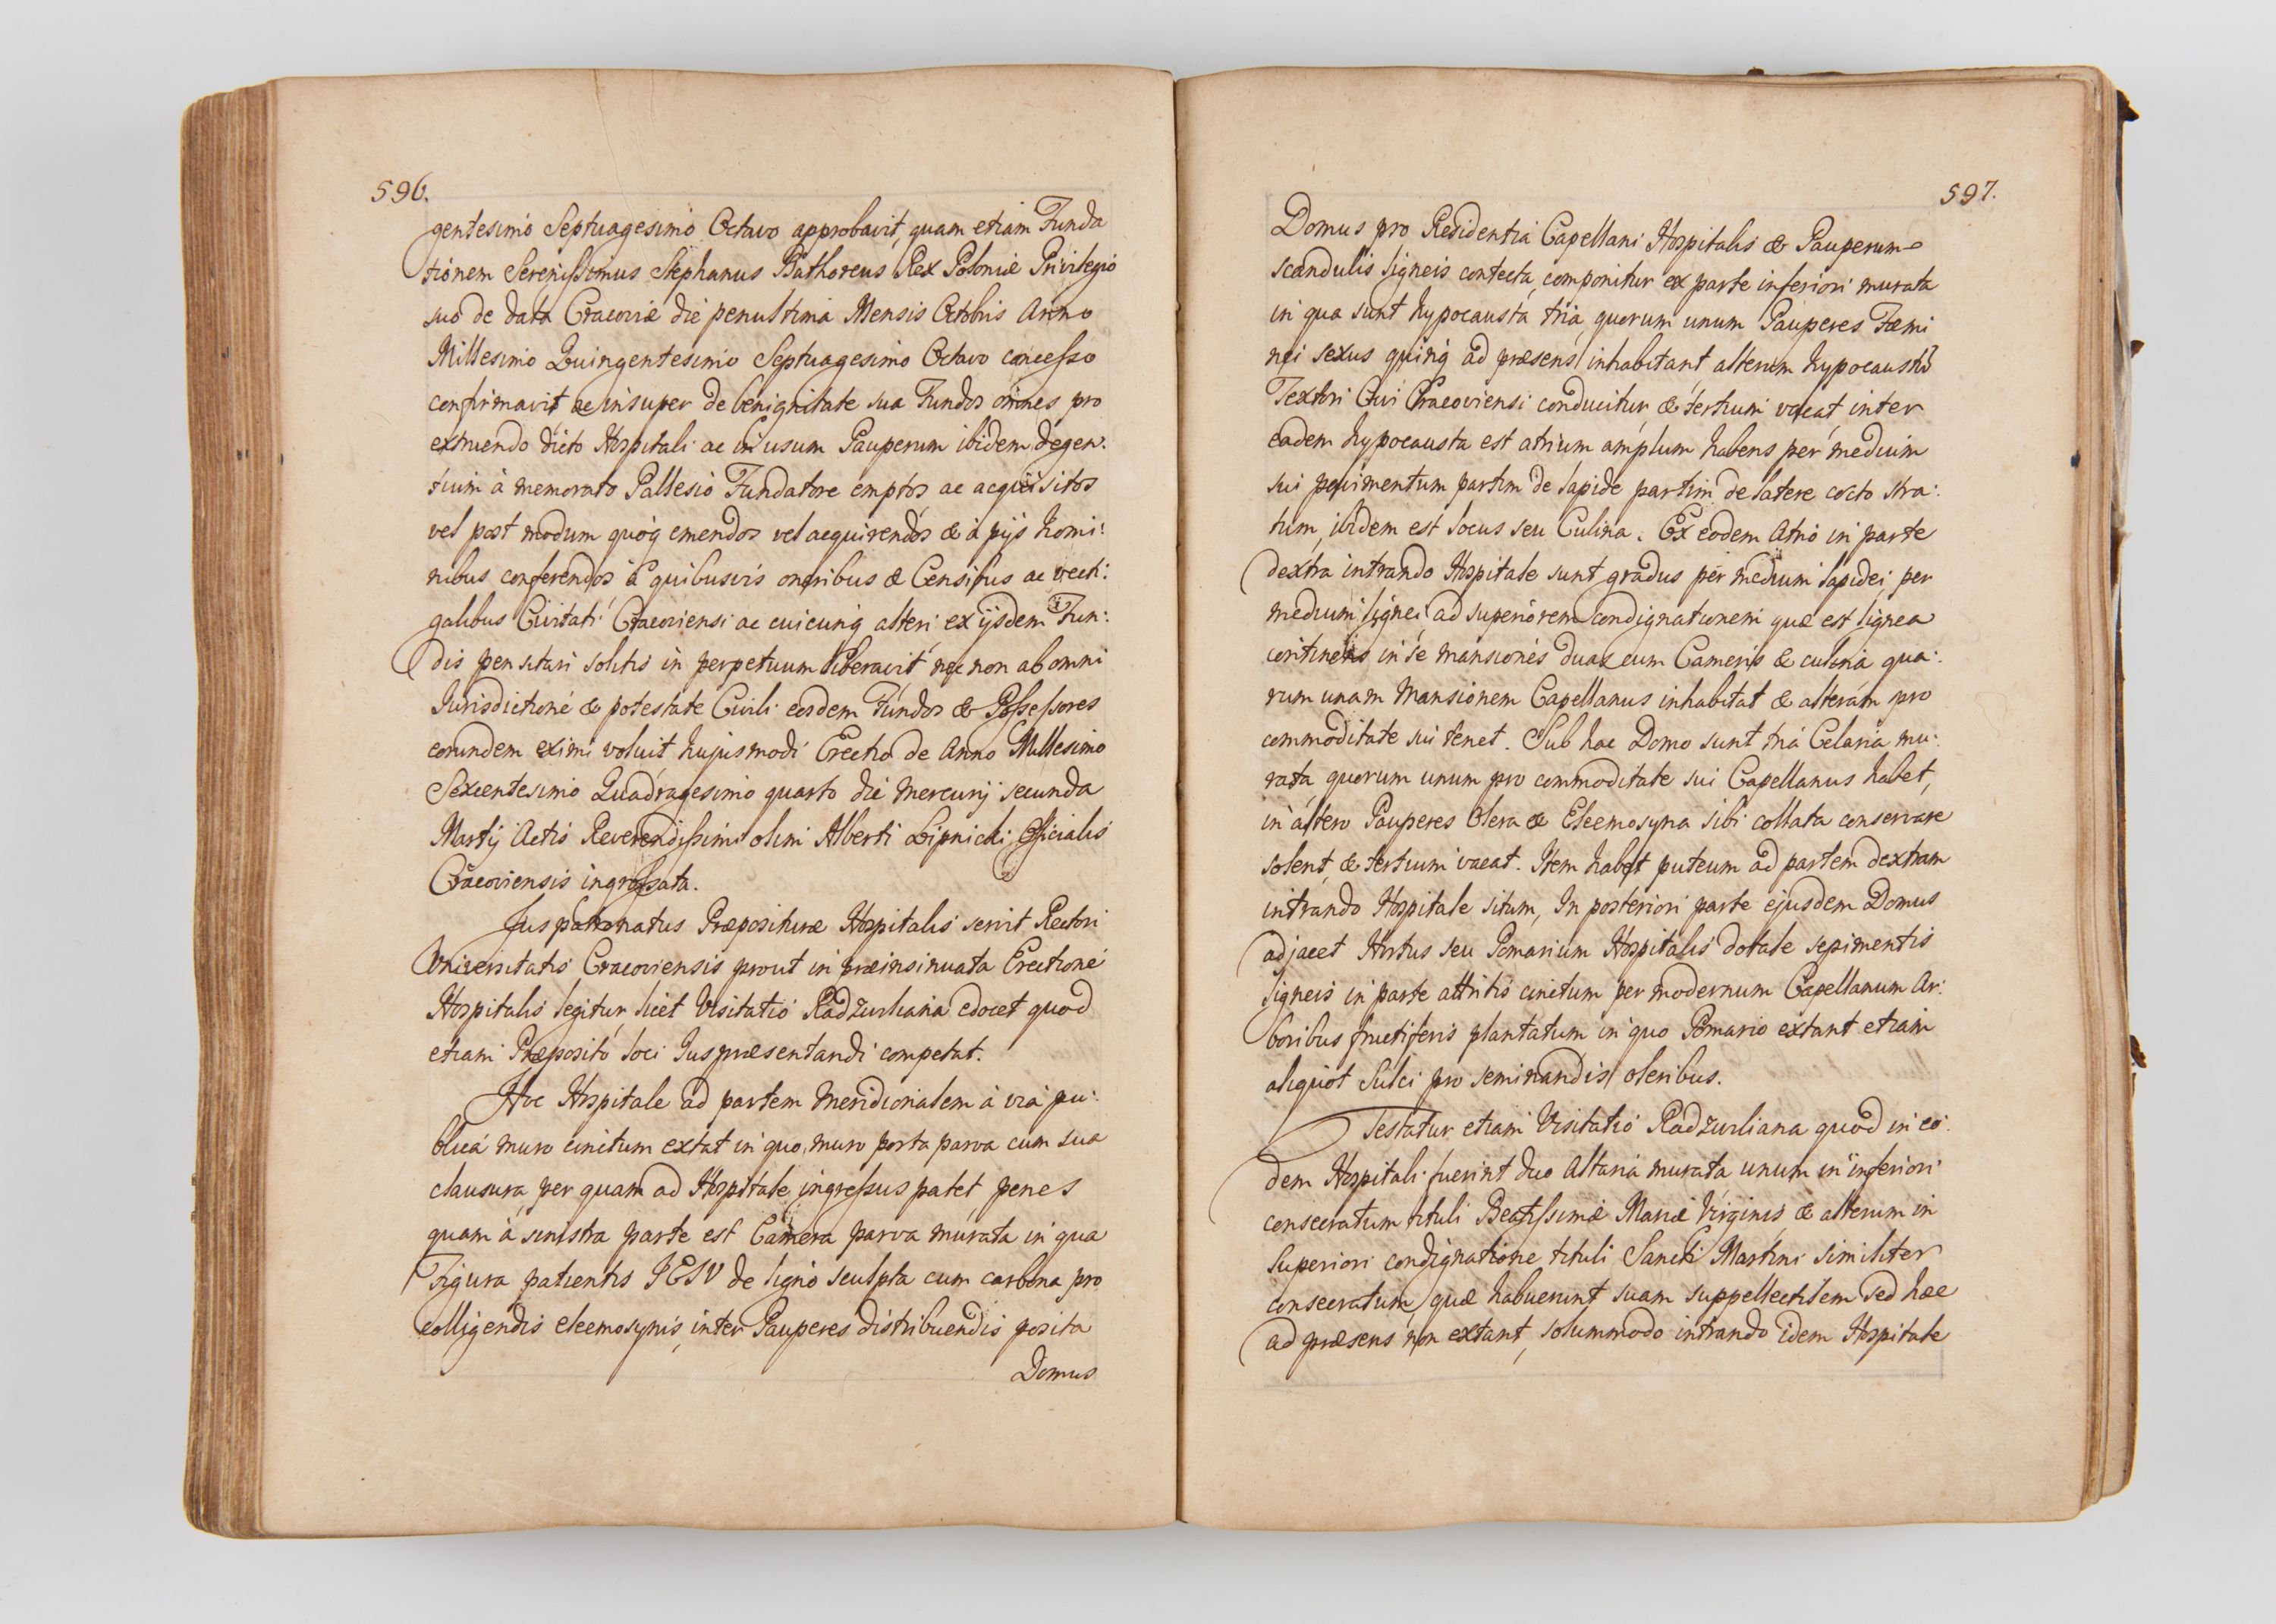 596.
gentesimo Septuagesimo Octavo approbavit, quam etiam Funda
tionem Serenissimus Stephanus Bathoreus Rex Poloniæ Privilegio
suo de data Cracoviæ die penultima Mensis Octobris Anno
Millesimo Quingentesimo Septuagesimo Octavo concesso
confirmavit ac insuper de benignitate sua Fundos omnes pro
extruendo dicto Hospitali ac in usum Pauperum ibidem degen:
tium à memorato Pallesio Fundatore emptos ac acquisitos
vel post modum quoq emendos vel acquirendos & à pijs homi:
nibus conferendos à quibusvis oneribus & Censibus ac vecti:
galibus Civitati Cracoviensi ac cuicunq alteri ex ijsdem Fun:
dis pensitari solitis in perpetuum liberavit nec non ab omni
Jurisdictione & potestate Civili eosdem Fundos & Possessores
eorundem eximi voluit hujusmodi Erectio de Anno Millesimo
Sexcentesimo Quadragesimo quarto die Mercurij secunda
Martij Actis Reverendissimi olim Alberti Lipnicki Officialis
Cracoviensis ingrossata.
Jus patronatus Præposituræ Hospitalis servit Rectori
Universitatis Cracoviensis prout in præinsinuata Erectione
Hospitalis legitur, licet Visitatio Radzivliana edocet quod
etiam Præposito loci Jus præsentandi competat.
Hoc Hospitale ad partem Meridionalem à via pu:
blica muro cinctum extat in quo muro porta parva cum sua
clausura, per quam ad Hospitale ingressus patet penes
quam à sinistra parte est Camera parva murata in qua
Figura patientis IESV de ligno sculpta cum carbona pro
colligendis eleemosynis, inter Pauperes distribuendis posita
Domus
597.
Domus pro Residentia Capellani Hospitalis & Pauperum
scandulis ligneis contecta, componitur ex parte inferiori murata
in qua sunt hypocausta tria, quorum unum Pauperes Fæmi
nei sexus quinq ad præsens inhabitant alterum hypocaustũ
Textori Civi Cracoviensi conducitur & tertium vacat, inter
eadem hypocausta est atrium amplum habens per medium
sui pavimentum partim de lapide partim de latere cocto stra:
tum, ibidem est locus seu Culina. Ex eodem Atrio in parte
dextra intrando Hospitale sunt gradus per medium lapidei, per
medium lignei ad superiorem condignationem quæ est lignea
continens in se mansiones duas cum Cameris & culina qua:
rum unam Mansionem Capellanus inhabitat & alteram pro
commoditate sui tenet. Sub hac Domo sunt tria Celaria mu:
rata, quorum unum pro commoditate sui Capellanus habet,
in altero Pauperes Olera & Eleemosyna sibi collata conservare
solent, & tertium vacat. Item habet puteum ad partem dextram
intrando Hospitale situm, In posteriori parte ejusdem Domus
adjacet Hortus seu Pomarium Hospitalis dotale sepimentis
ligneis in parte attritis cinctum per modernum Capellanum Ar:
boribus fructiferis plantatum in quo Pomario extant etiam
aliquot Sulci pro seminandis oleribus.
Testatur etiam Visitatio Radzivliana quod in eo:
dem Hospitali fuerint duo Altaria murata unum in inferiori
consecratum tituli Beatissimæ Mariæ Virginis & alterum in
Superiori condignatione tituli Sancti Martini similiter
consecratum quæ habuerunt suam suppellectilem sed hæc
ad præsens non extant, solummodo intrando idem Hospitale